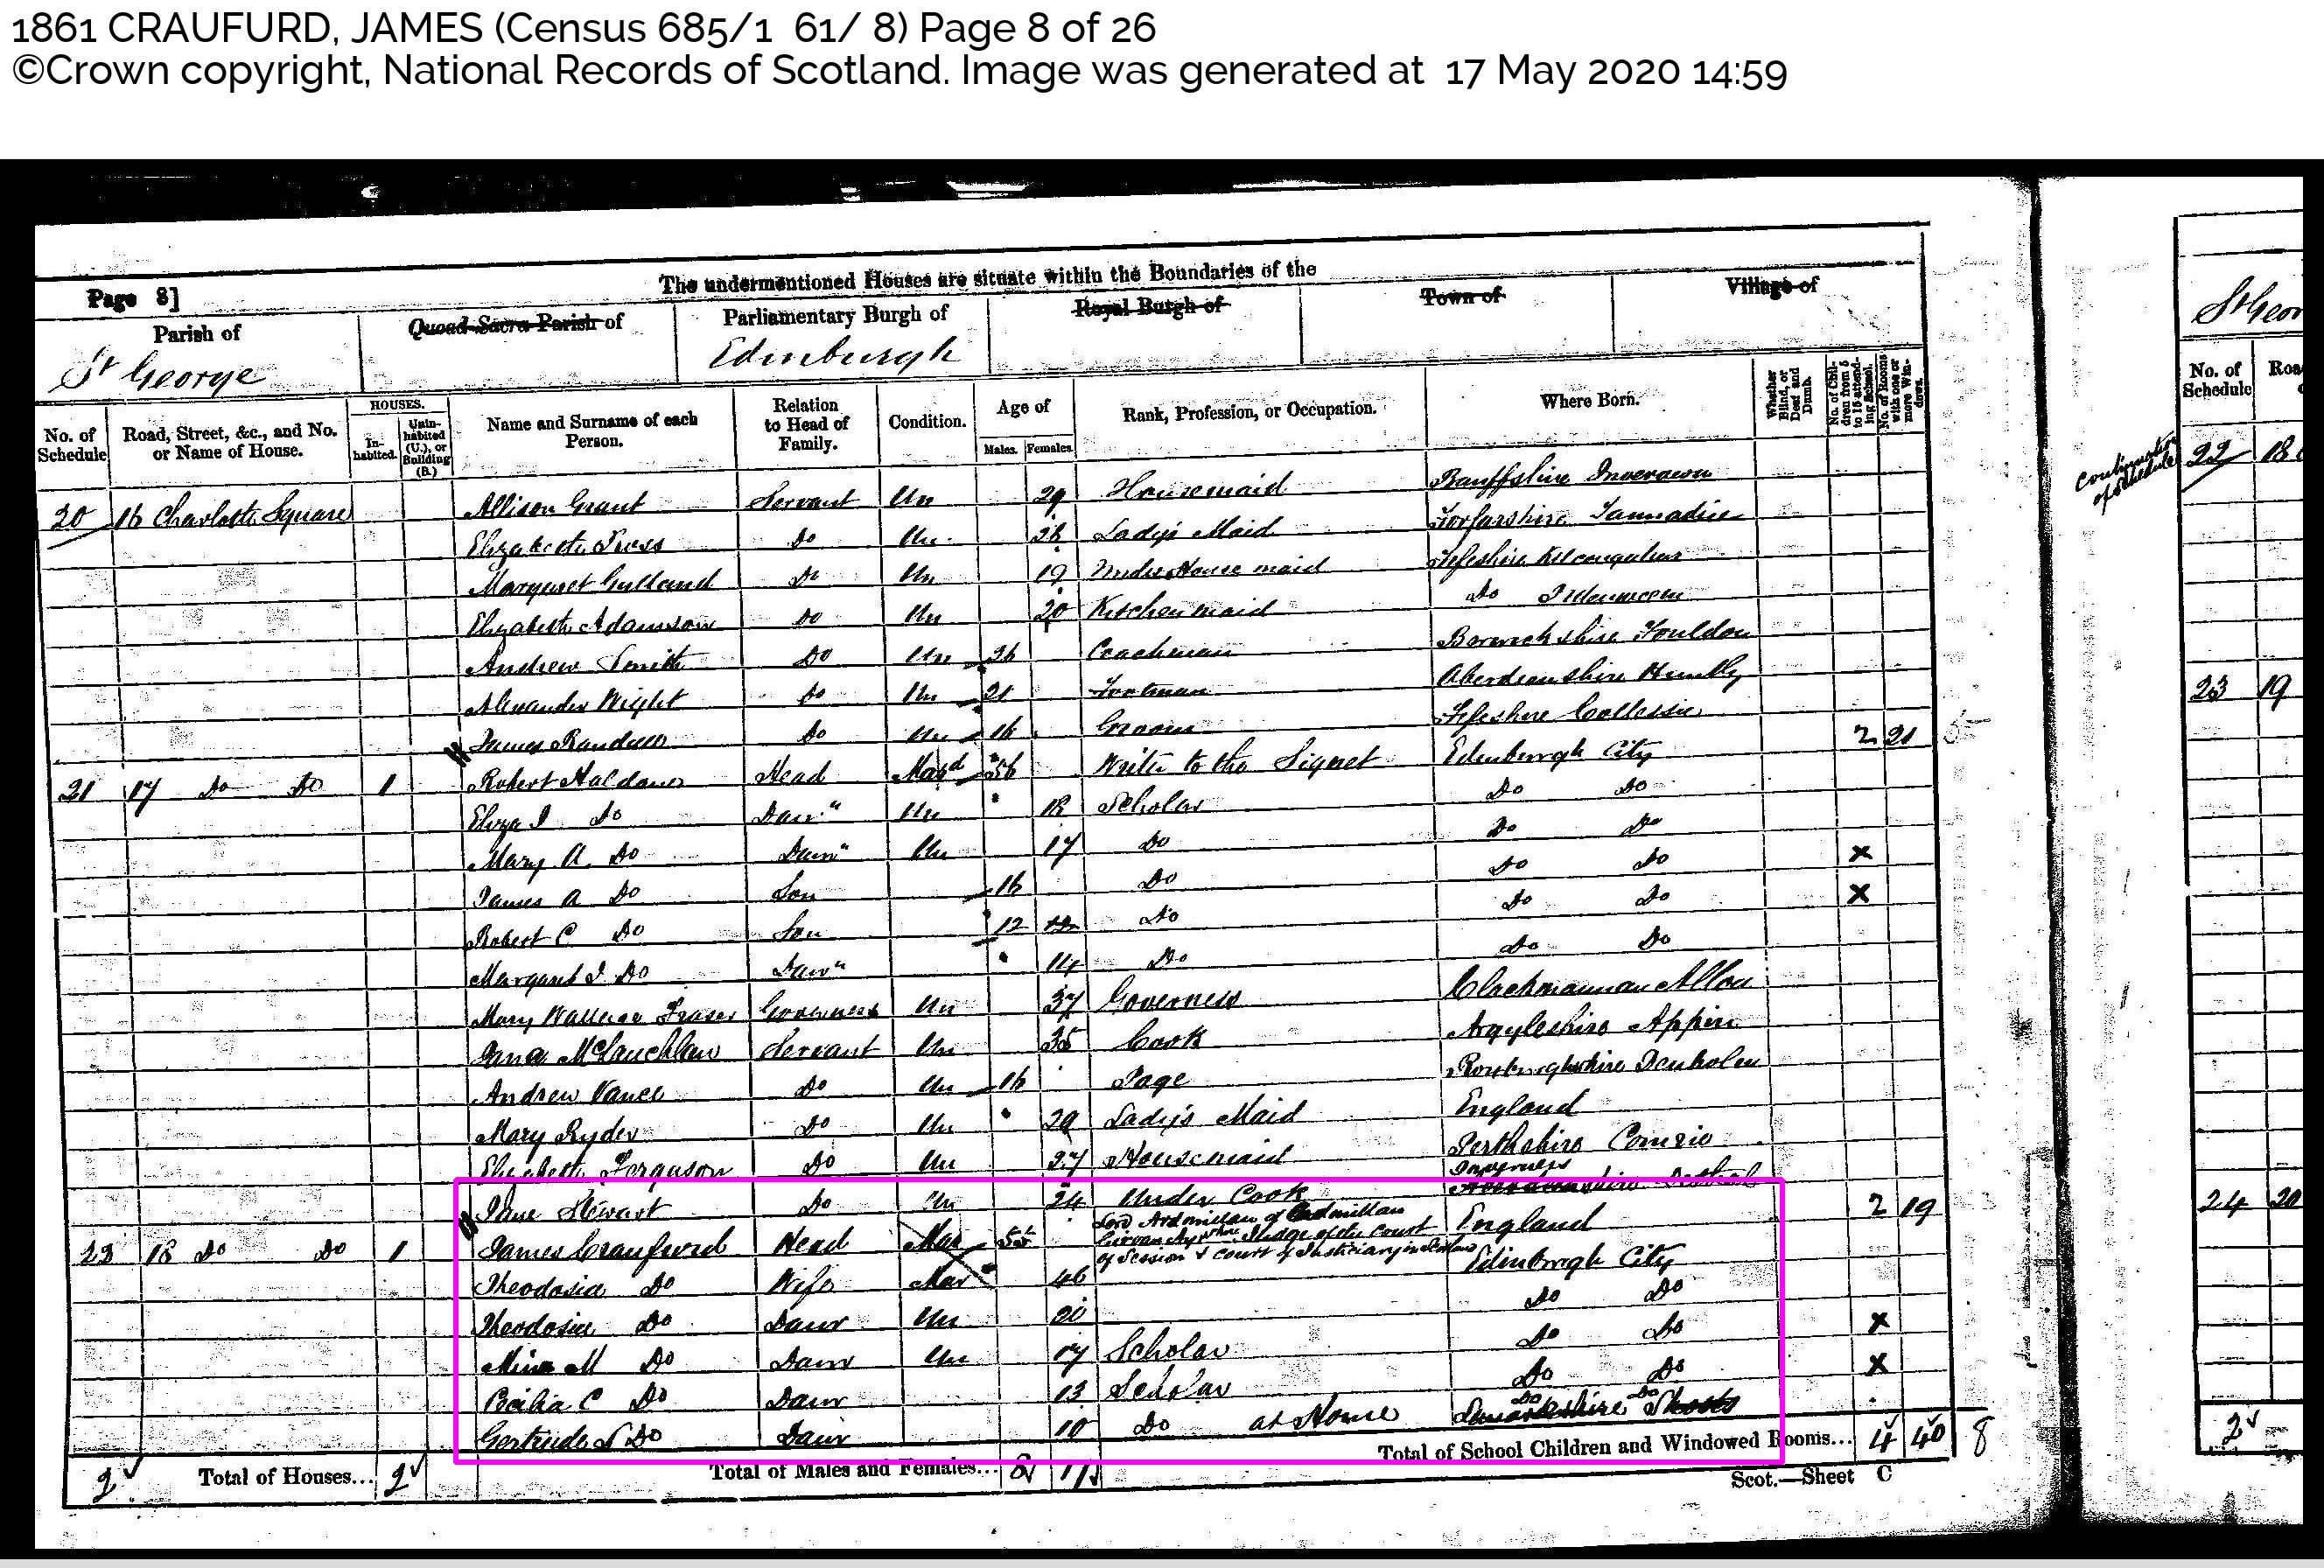 1861 CRAUFURD, JAMES (Census 685/1 61/ 8) Page 8 of 26
©Crown copyright, National Records of Scotland. Image was generated at 17 May 2020 14:59
The undermentioned Houses are situate within the Boundaries of the
Page 8]
Parish of St George
Quoad Sacra Parish of
Parliamentary Burgh of Edinburgh
Royal Burgh of
Town of
Village of
No. of Schedule
Road, Street, &c., and No. or Name of House.
HOUSES.
In-habited.
Unin-habited (U.), or Building (B.)
Name and Surname of each Person.
Relation to Head of Family.
Condition.
Age of
Males. Females.
Rank, Profession, or Occupation.
Where Born.
Whether Blind, or Deaf and Dumb.
No. of Chil-dren from 5 to 15 attend-ing School.
No. of Rooms with one or more Win-dows.
20 16 Charlotte Square Allison Grant Servant Un 29 Housemaid Banffshire
Elizabeth Do Un 26 Lady's Maid Forfarshire Tannadice
Margaret Do Un 19 Under House maid Fifeshire
Elizabeth Adamson Do Un 20 Kitchen maid Do
Andrew Smith Do Un 26 Coachman Berwickshire Fouldon
Alexander Wight Do Un 21 Footman Aberdeenshire Huntly
James Do Un 16 Groom Fifeshire Collessie
21 17 Do Do 1 Robert Haldane Head Mard 56 Writer to the Signet Edinburgh City 2 21
Eliza J Do Daur Un 18 Scholar Do Do
Mary A Do Daur Un 17 Do Do Do
James A Do Son 16 Do Do Do x
Robert C Do Son 12 Do Do Do x
Margaret J Do Daur 14 Do Do Do
Mary Wallace Fraser Governess Un 37 Governess Clackmannan Alloa
McLauchlan Servant Un 35 Cook Argyleshire Appin
Andrew Vance Do Un 16 Page Roxburghshire Denholm
Mary Ryder Do Un 29 Lady's Maid England
Elizabeth Ferguson Do Un 27 Housemaid Perthshire Comrie
Jane Stewart Do Un 24 Under Cook Inverness
23 18 Do Do 1 James Craufurd Head Mar 55 Lord Ardmillan of Ardmillan Girvan Judge of the Court of Session & Court of Justiciary in Scotland England 2 19
Theodosia Do Wife Mar 46 Edinburgh City
Theodosia Do Daur Un 20 Do Do
M Do Daur Un 17 Scholar Do Do x
Cecilia C Do Daur 13 Scholar Do Do x
Gertrude Do Daur 10 Do at Home Do Do Lanarkshire Shotts
2 Total of Houses... 2
Total of Males and Females... 8 17
Total of School Children and Windowed Rooms... 4 40 8
Scot.—Sheet C
St Geor
No. of Schedule
Roa
Continuation of schedule
22 18
23 19
24 20
2